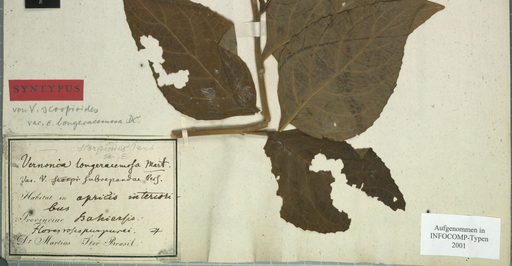 SYNTYPUS
von V. scorpioides
var. ε. longeracemosa DC
Scorpioides Pers
var. ε.
Vernonia longeracemosa Mart.
var. V.
Habitat in apricis interiori-
bus
Provinciae Bahiensis.
Flores rosopurpurei. ♃
Dr. Martius Iter Brasil.
Aufgenommen in
INFOCOMP-Typen
2001